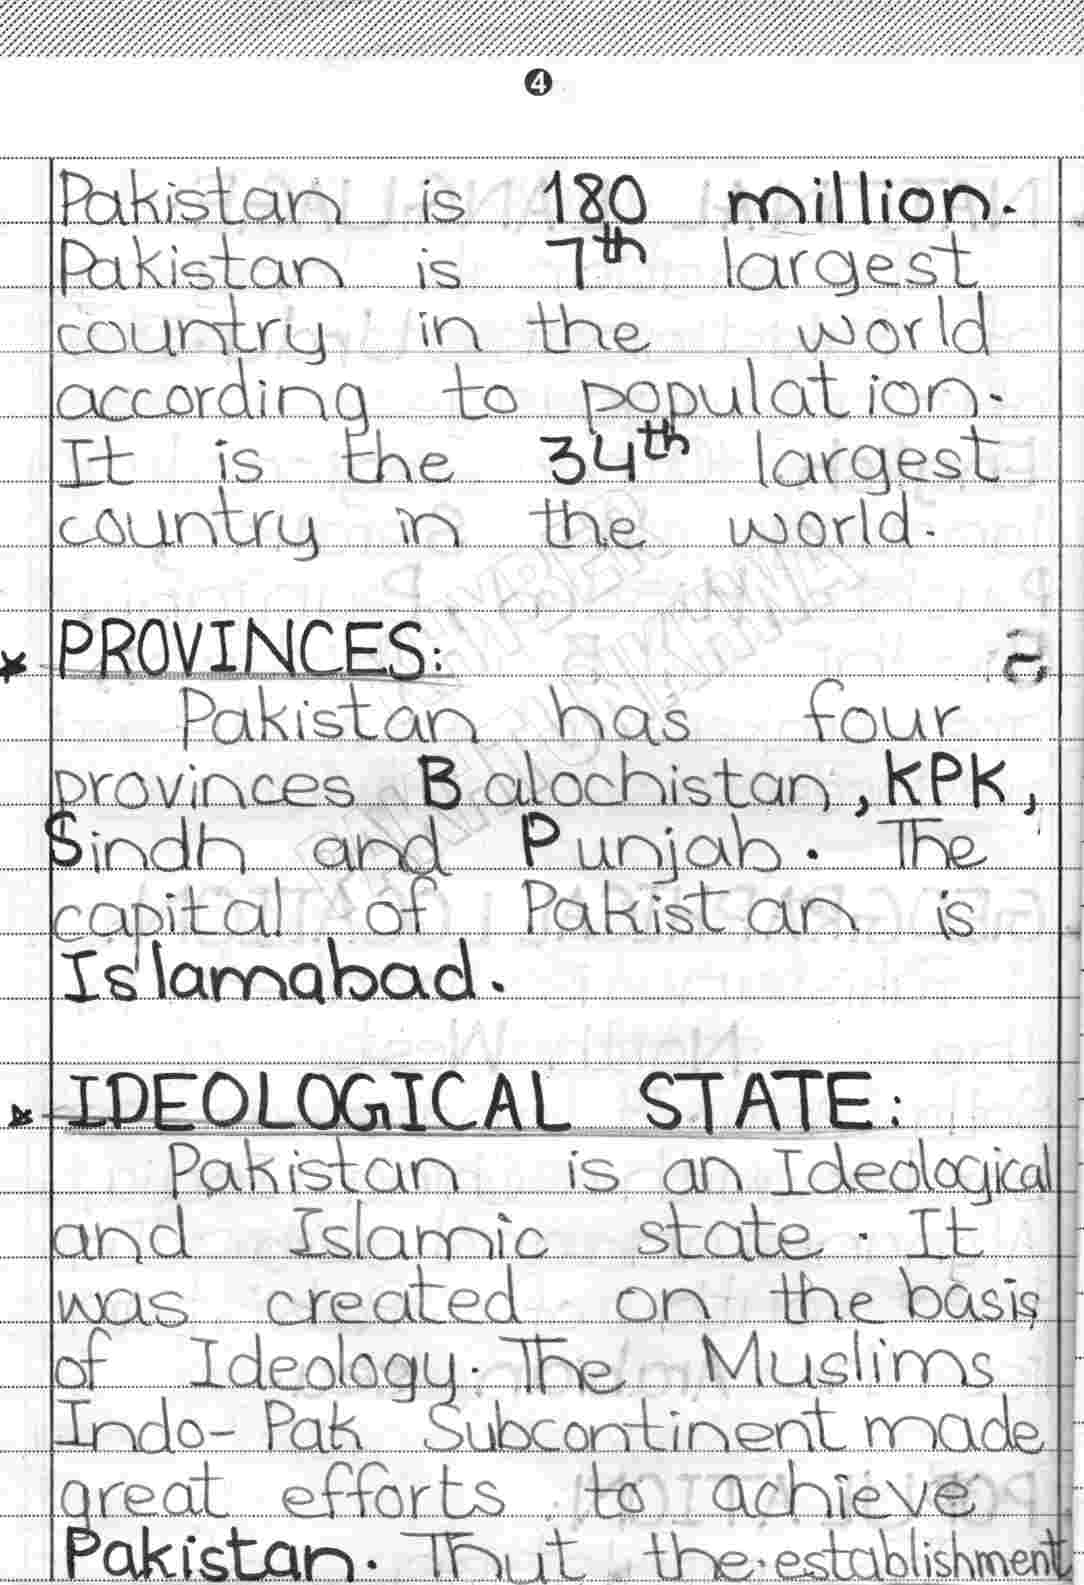 4
Pakistan is 180 million.
Pakistan is 7th largest
country in the world
according to population.
It is the 34th largest
country in the world.
PROVINCES:
Pakistan has four
provinces Balochistan, KPK,
Sindh and Punjab. The
capital of Pakistan is
Islamabad.
IDEOLOGICAL STATE:
Pakistan is an Ideological
and Islamic state. It
was created on the basis
of Ideology. The Muslims
Indo-Pak Subcontinent made
great efforts to achieve
Pakistan. Thut the establishment